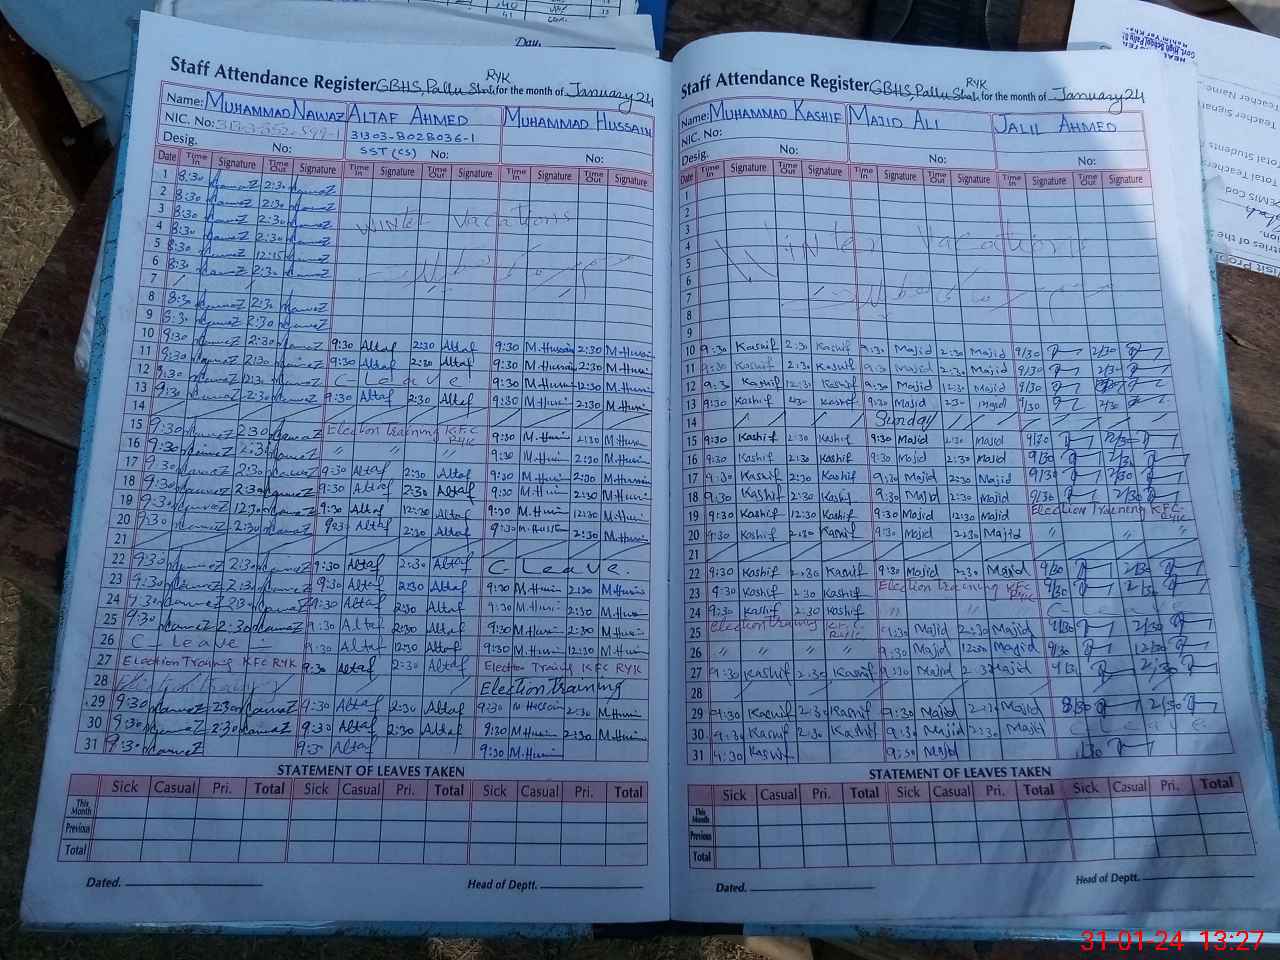 Day.
Staff Attendance Register GBHS, Pallu Shah RYK for the month of January 24
Name: MUHAMMAD NAWAZ ALTAF AHMED MUHAMMAD HUSSAIN
NIC. No: 31303-8028036-1
Desig. No: SST (CS) No: No:
Date Time In Signature Time Out Signature Time In Signature Time Out Signature Time In Signature Time Out Signature
1 8:30 Nawaz 2:30 Nawaz
2 8:30 Nawaz 2:30 Nawaz
3 8:30 Nawaz 2:30 Nawaz Winter Vacations
4 8:30 Nawaz 2:30 Nawaz
5 8:30 Nawaz 12:15 Nawaz
6 8:30 Nawaz 2:30 Nawaz
7
8 8:30 Nawaz 2:30 Nawaz
9 8:30 Nawaz 2:30 Nawaz
10 9:30 Nawaz 2:30 Nawaz 9:30 Altaf 2:30 Altaf 9:30 M.Hussain 2:30 M.Hussain
11 9:30 Nawaz 2:30 Nawaz 9:30 Altaf 2:30 Altaf 9:30 M.Hussain 2:30 M.Hussain
12 9:30 Nawaz 2:30 Nawaz C-Leave 9:30 M.Hussain 12:30 M.Hussain
13 9:30 Nawaz 2:30 Nawaz 9:30 Altaf 2:30 Altaf 9:30 M.Husain 2:30 M.Husain
14
15 9:30 Nawaz 2:30 Nawaz Election Training KFC RYK 9:30 M.Husain 2:30 M.Husain
16 9:30 Nawaz 2:30 Nawaz " " " 9:30 M.Husain 2:30 M.Husain
17 9:30 Nawaz 2:30 Nawaz 9:30 Altaf 2:30 Altaf 9:30 M.Husain 2:30 M.Hussain
18 9:30 Nawaz 2:30 Nawaz 9:30 Altaf 2:30 Altaf 9:30 M.Husain 2:30 M.Husain
19 9:30 Nawaz 12:30 Nawaz 9:30 Altaf 12:30 Altaf 9:30 M.Husain 12:30 M.Husain
20 9:30 Nawaz 2:30 Nawaz 9:30 Altaf 2:30 Altaf 9:30 M.Hussain 2:30 M.Hussain
21
22 9:30 Nawaz 2:30 Nawaz 9:30 Altaf 2:30 Altaf C. Leave.
23 9:30 Nawaz 2:30 Nawaz 9:30 Altaf 2:30 Altaf 9:30 M.Husain 2:30 M.Hussain
24 9:30 Nawaz 2:30 Nawaz 9:30 Altaf 2:30 Altaf 9:30 M.Husain 2:30 M.Husain
25 9:30 Nawaz 2:30 Nawaz 9:30 Altaf 2:30 Altaf 9:30 M.Husain 2:30 M.Husain
26 C-Leave 9:30 Altaf 12:30 Altaf 9:30 M.Husain 12:30 M.Husain
27 Election Training KFC RYK 9:30 Altaf 2:30 Altaf Election Training KFC RYK
28 Election Training
29 9:30 Nawaz 2:30 Nawaz 9:30 Altaf 2:30 Altaf 9:30 M Hussain 2:30 M.Husain
30 9:30 Nawaz 2:30 Nawaz 9:30 Altaf 2:30 Altaf 9:30 M.Husain 2:30 M.Husain
31 9:30 Nawaz 9:30 Altaf 9:30 M.Husain
STATEMENT OF LEAVES TAKEN
Sick Casual Pri. Total Sick Casual Pri. Total Sick Casual Pri. Total
This Month
Previous
Total
Dated. Head of Deptt.
Staff Attendance Register GBHS, Pallu Shah RYK for the month of January 24
Name: MUHAMMAD KASHIF MAJID ALI JALIL AHMED
NIC. No:
Desig. No: No: No:
Date Time In Signature Time Out Signature Time In Signature Time Out Signature Time In Signature Time Out Signature
1
2
3
4 Winter Vacations
5
6
7
8
9
10 9:30 Kashif 2:30 Kashif 9:30 Majid 2:30 Majid 9/30 2/30
11 9:30 Kashif 2:30 Kashif 9:30 Majid 2:30 Majid 9/30 2/30
12 9:30 Kashif 12:30 Kashif 9:30 Majid 12:30 Majid 9/30
13 9:30 Kashif Kashif 9:30 Majid 2:30 Majid 9/30 2/30
14 Sunday
15 9:30 Kashif 2:30 Kashif 9:30 Majid 2:30 Majid 9/30 2/30
16 9:30 Kashif 2:30 Kashif 9:30 Majid 2:30 Majid 9/30 2/30
17 9:30 Kashif 2:30 Kashif 9:30 Majid 2:30 Majid 9/30 2/30
18 9:30 Kashif 2:30 Kashif 9:30 Majid 2:30 Majid 9/30 2/30
19 9:30 Kashif 12:30 Kashif 9:30 Majid 12:30 Majid Election Training KFC RYK
20 9:30 Kashif 2:30 Kashif 9:30 Majid 2:30 Majid " "
21
22 9:30 Kashif 2:30 Kashif 9:30 Majid 2:30 Majid 9/30 2/30
23 9:30 Kashif 2:30 Kashif Election Training KFC RYK 9/30 2/30
24 9:30 Kashif 2:30 Kashif " " " C-Leave
25 Election Training KFC RYK 9:30 Majid 2:30 Majid 9/30 2/30
26 " " " " 9:30 Majid 12:30 Majid 9/30 12/30
27 9:30 Kashif 2:30 Kashif 9:30 Majid 2:30 Majid 9/30 2/30
28
29 9:30 Kashif 2:30 Kashif 9:30 Majid 2:30 Majid 8/30 2/30
30 9:30 Kashif 2:30 Kashif 9:30 Majid 2:30 Majid C Leave
31 9:30 Kashif 9:30 Majid
STATEMENT OF LEAVES TAKEN
Sick Casual Pri. Total Sick Casual Pri. Total Sick Casual Pri. Total
This Month
Previous
Total
Dated. Head of Deptt.
31-01-24 13:27